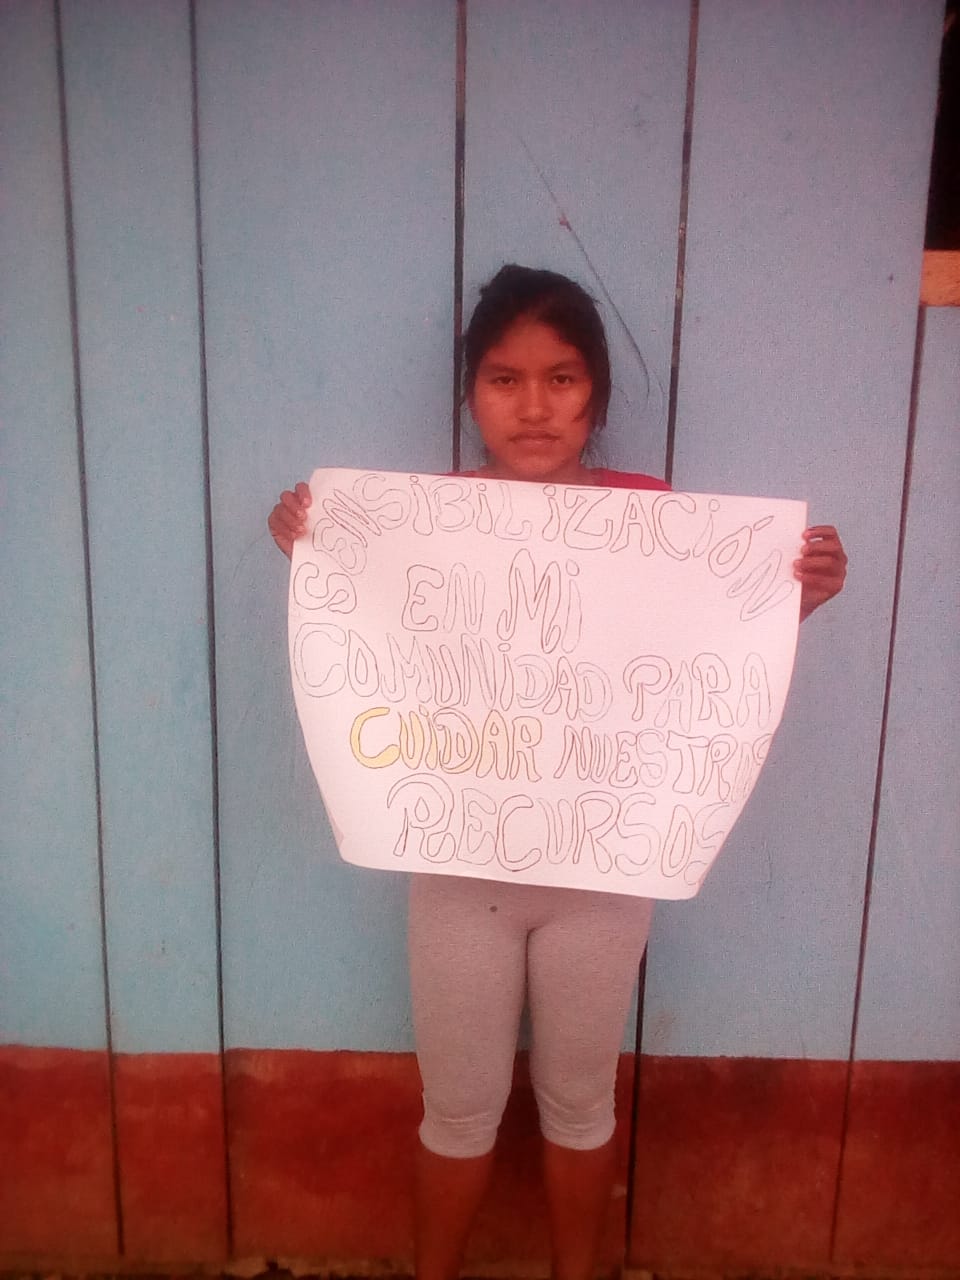 SENSIBILIZACIÓN
EN MI
COMUNIDAD PARA
CUIDAR NUESTROS
RECURSOS